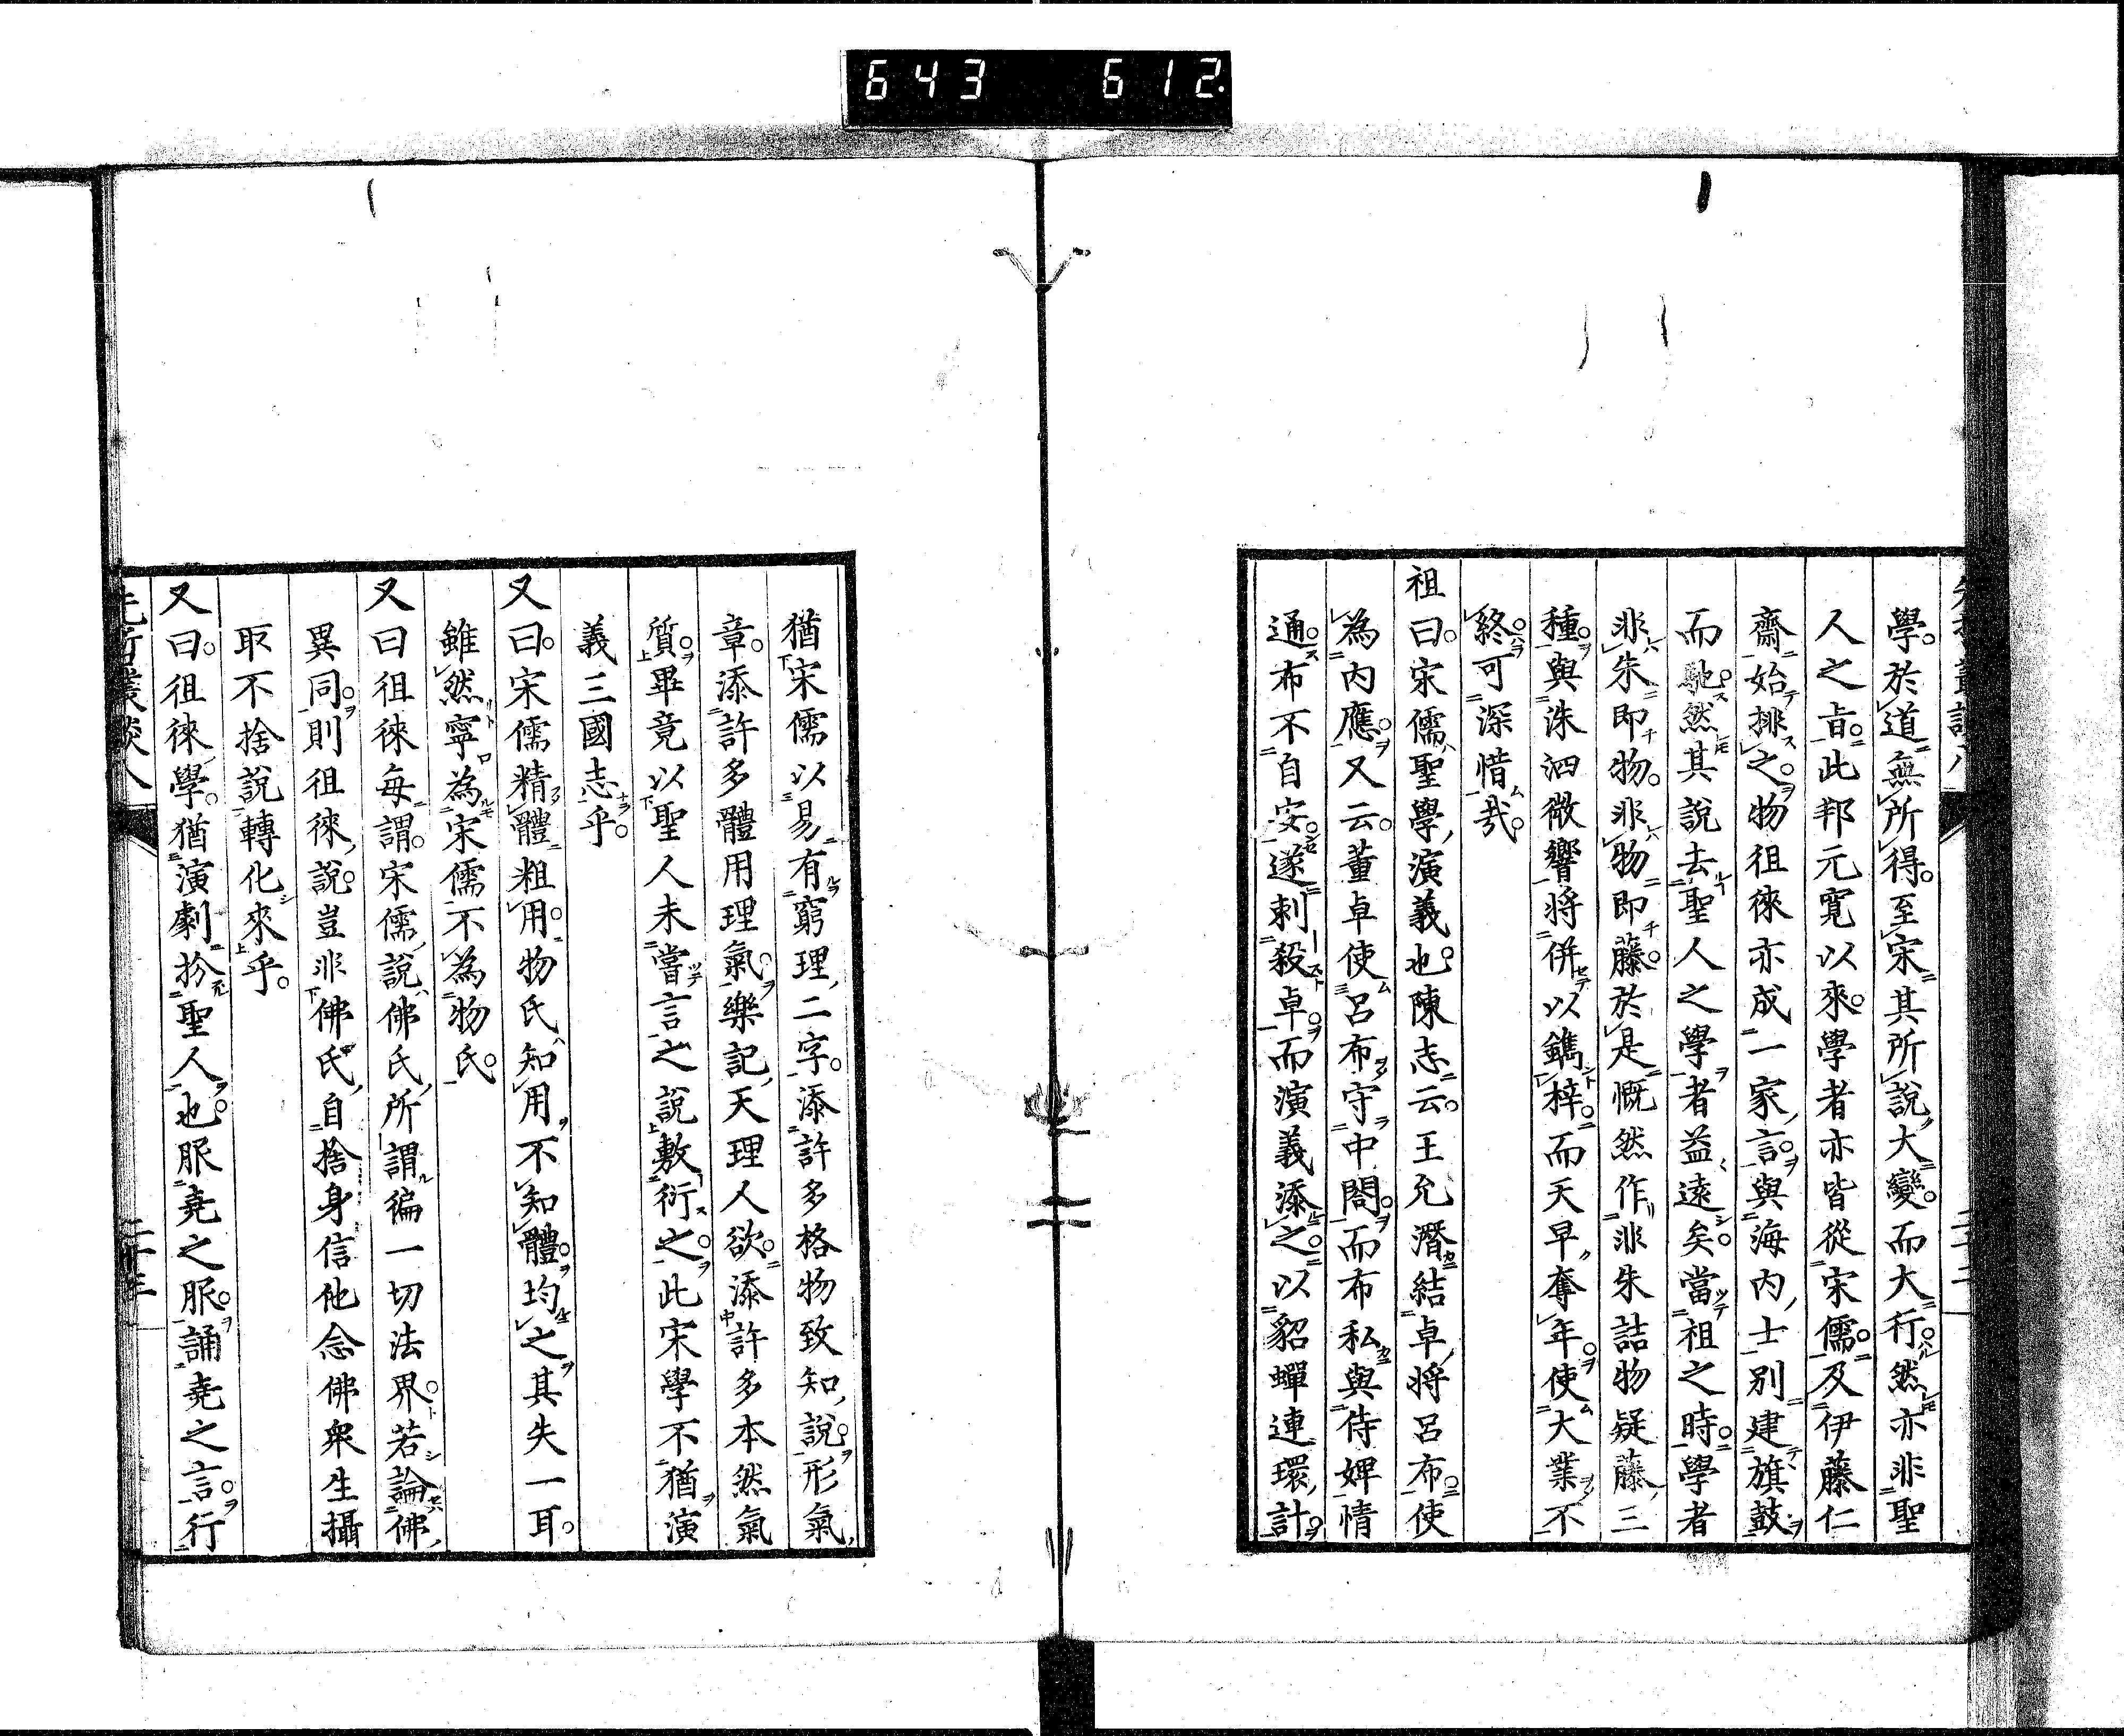 643 612.
學於道無所得至宋其所說大變而大行然亦非聖
人之旨此邦元寬以來學者亦皆從宋儒及伊藤仁
齋始排之物徂徠亦成一家言與海內士別建旗鼓
而馳然其說去聖人之學者益遠矣當祖之時學者
非朱即物非物即藤於是慨然作非朱詰物疑藤三
種與洙泗微響將併以鐫梓而天早奪年使大業不
終可深惜哉
祖曰宋儒聖學演義也陳志云王允潛結卓將呂布使
為內應又云董卓使呂布守中閤而布私與侍婢情
通布不自安遂刺殺卓而演義添之以貂蟬連環計
猶宋儒以易有窮理二字添許多格物致知說形氣
章添許多體用理氣樂記天理人欲添許多本然氣
質畢竟以聖人未嘗言之說敷衍之此宋學不猶演
義三國志乎
又曰宋儒精體粗用物氏知用不知體均之其失一耳
雖然寧為宋儒不為物氏
又曰徂徠每謂宋儒說佛氏所謂徧一切法界若論佛
異同則徂徠說豈非佛氏自捨身信他念佛眾生攝
取不捨說轉化來乎
又曰徂徠學猶演劇扮聖人也服堯之服誦堯之言行